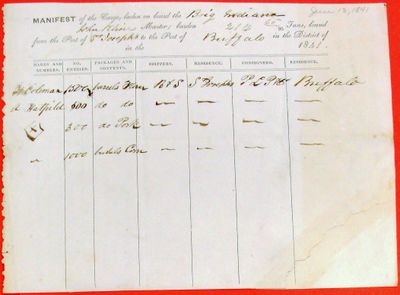 June 12, 1841
MANIFEST of the Cargo, laden on board the Brig Indiana
John Kline Master; burden 212 Tons, bound
from the Port of to the Port of Buffalo in the District of
in the 1841.
MARKS AND NUMBERS. NO. ENTRIES. PACKAGES AND CONTENTS. SHIPPERS. RESIDENCE. CONSIGNEES. RESIDENCE.
Coleman 1500 barrels Flour B & S Buffalo
Hatfield 600 do do — — — —
300 do Pork — — — —
" 1000 bushels Corn — — — —